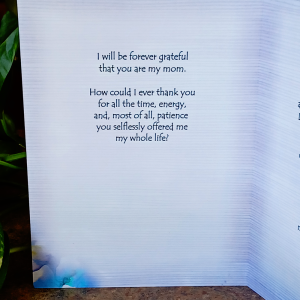 I will be forever grateful
that you are my mom.
How could I ever thank you
for all the time, energy,
and, most of all, patience
you selflessly offered me
my whole life?